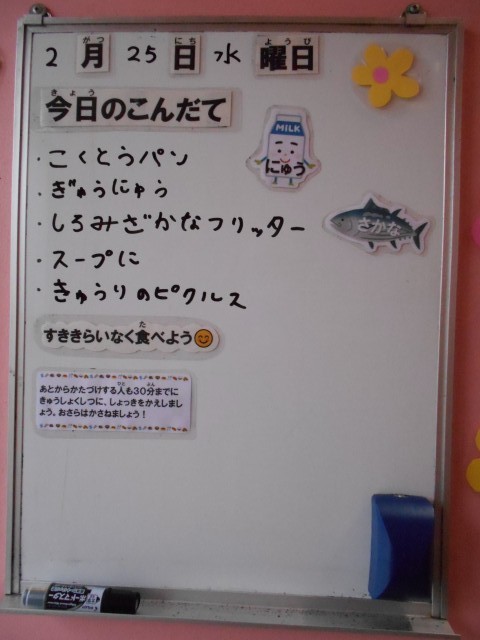 2月25日水曜日
がつ にち ようび
今日のこんだて
きょう
MiLK
にゅう
・こくとうパン
・ぎゅうにゅう
・しろみざかなフリッター
さかな
・スープに
・きゅうりのピクルス
すききらいなく食べよう
た
あとからかたづけする人も30分までに
ひと ぷん
きゅうしょくしつに、しょっきをかえしまし
ょう。おさらはかさねましょう！
ボードマスター